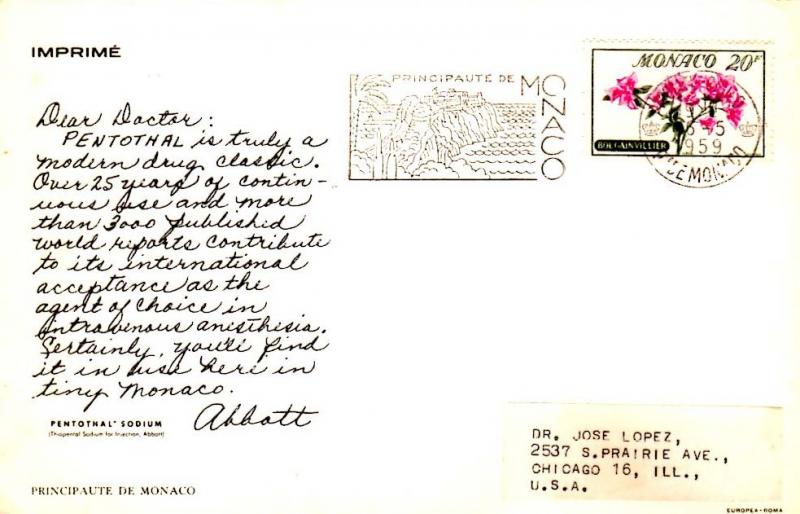 IMPRIMÉ
Dear Doctor:
PENTOTHAL is truly a
modern drug classic.
Over 25 years of contin-
uous use and more
than 3000 published
world reports contribute
to its international
acceptance as the
agent of choice in
intravenous anesthesia.
Certainly, you'll find
it in use here in
tiny Monaco.
Abbott
PENTOTHAL® SODIUM
(Thiopental Sodium for Injection, Abbott)
PRINCIPAUTE DE MONACO
PRINCIPAUTÉ DE
MONACO
MONACO 20F
BOUGAINVILLIER
1959
DE MONACO
DR. JOSE LOPEZ,
2537 S.PRAIRIE AVE.,
CHICAGO 16, ILL.,
U.S.A.
EUROPEA-ROMA